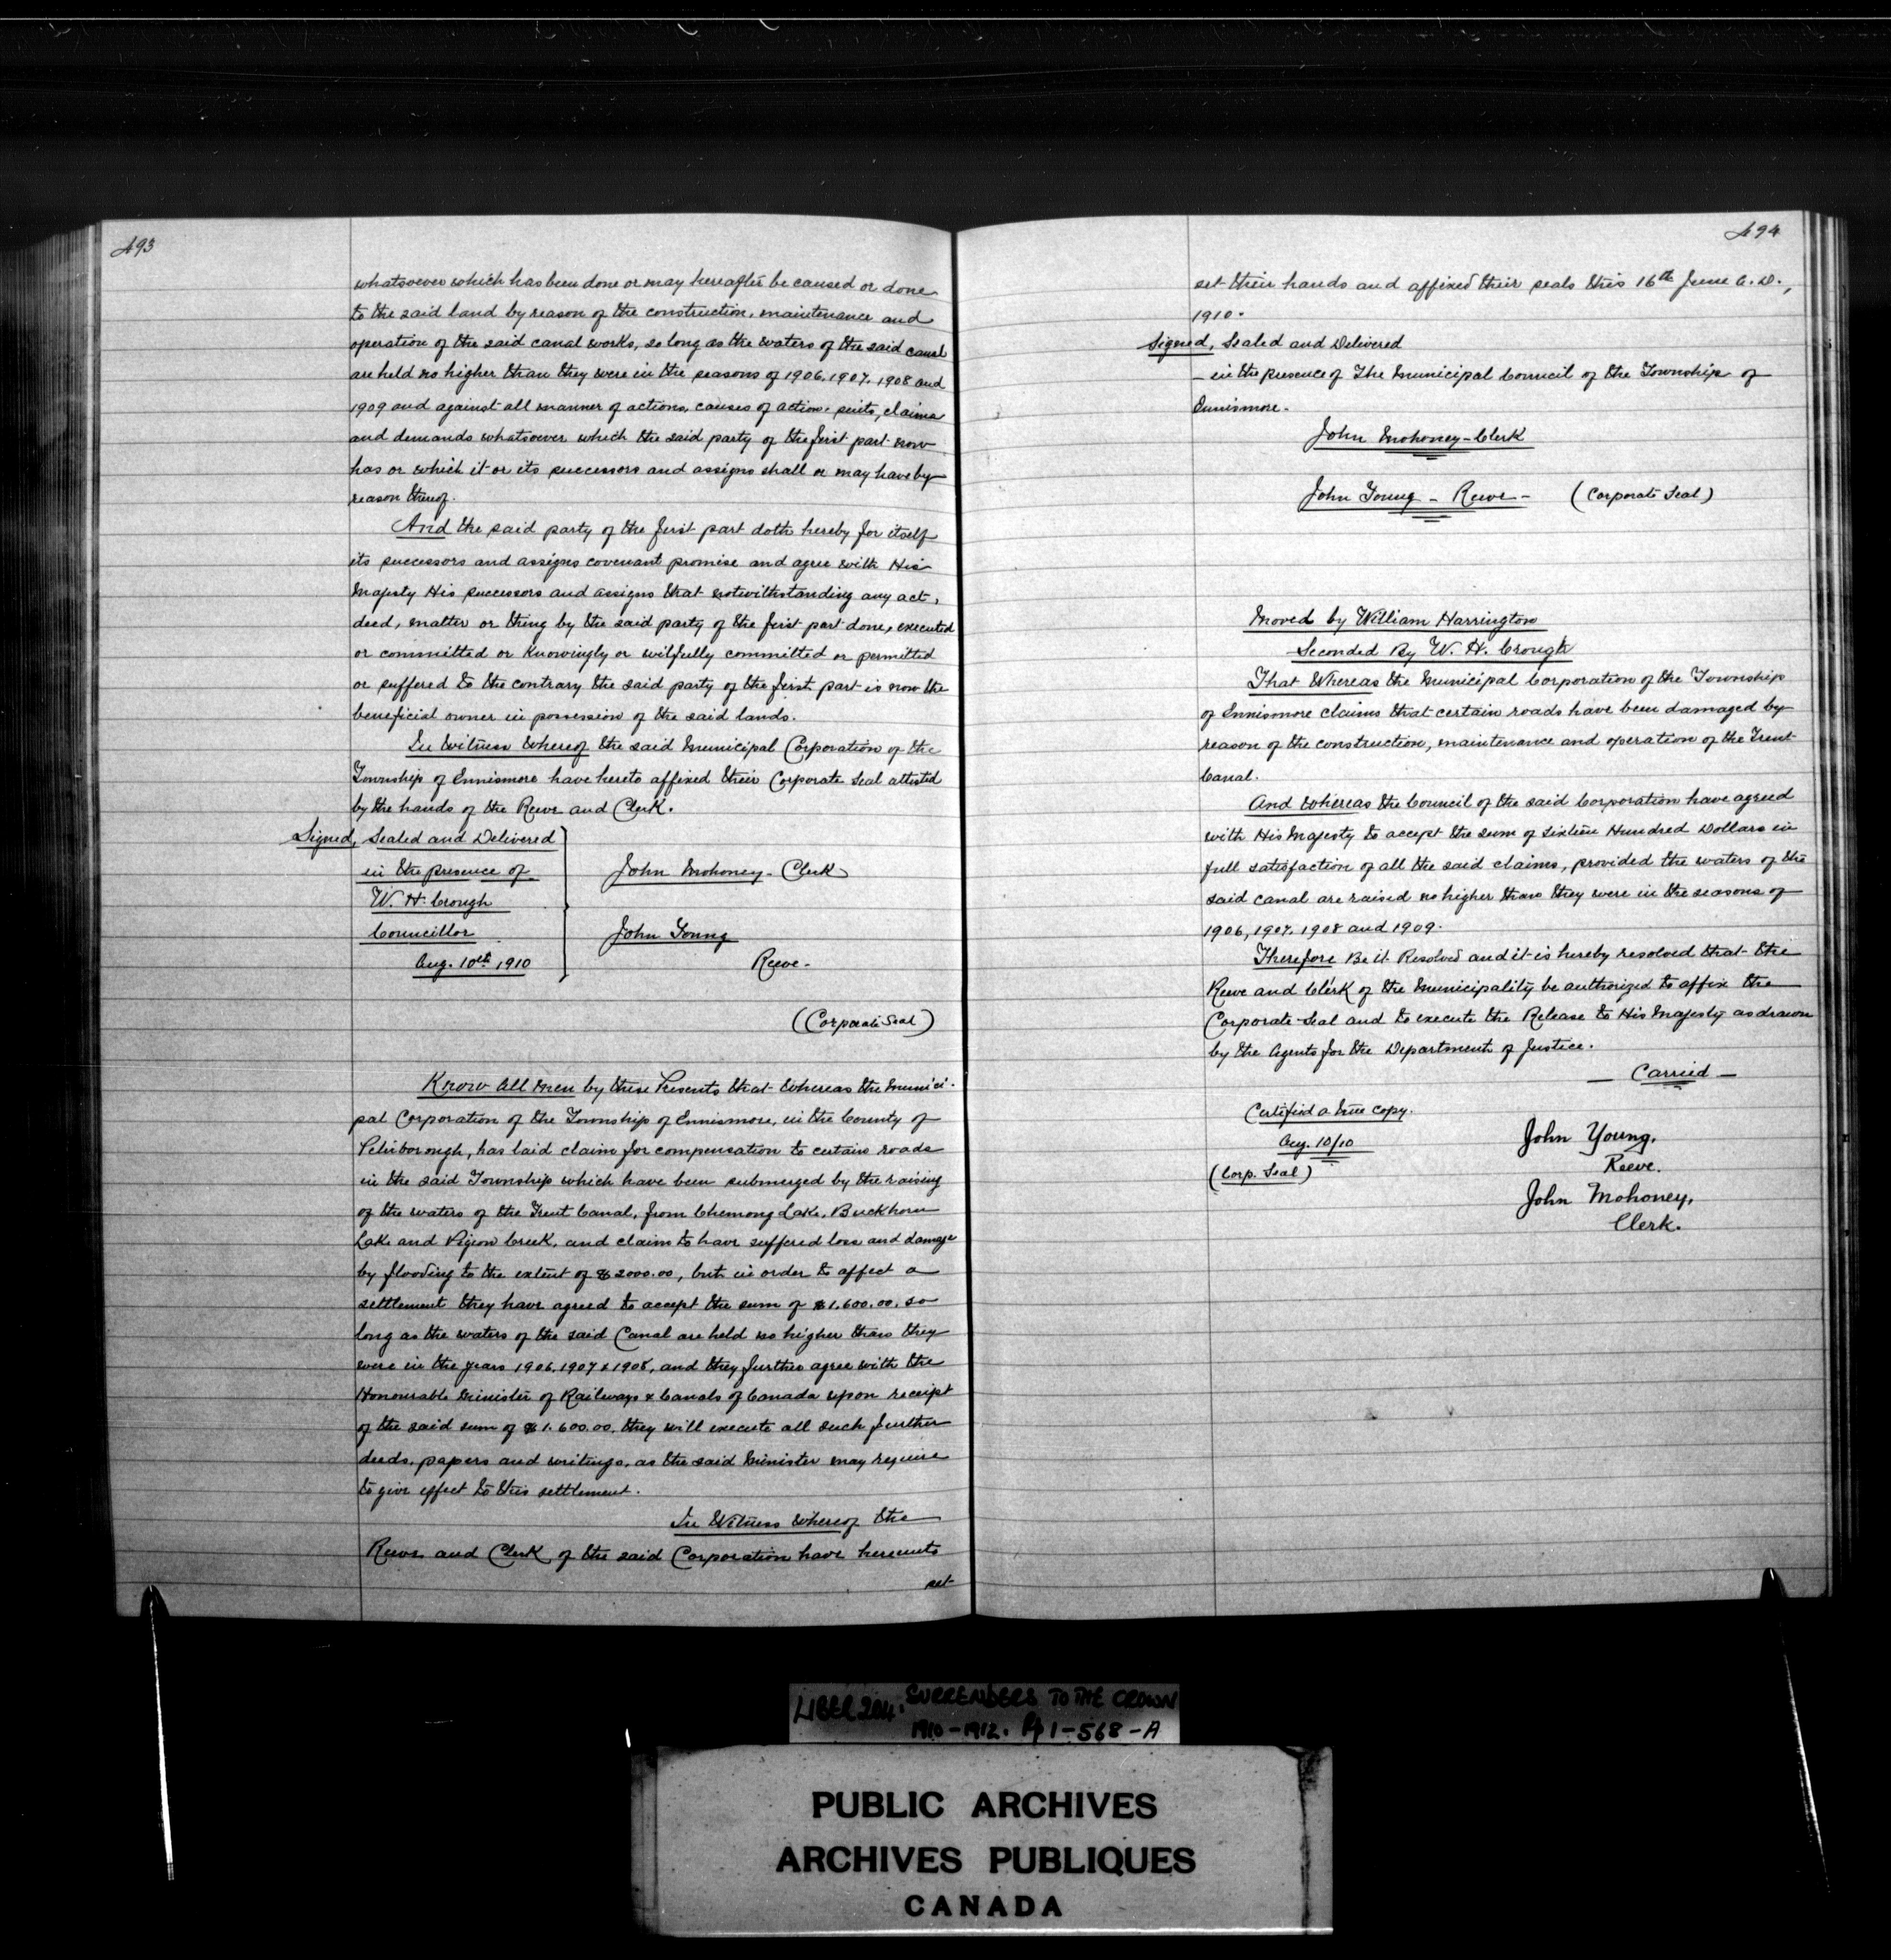 493
whatsoever which has been done or may hereafter be caused or done
to the said land by reason of the construction, maintenance and
operation of the said canal works, so long as the waters of the said canal
are held no higher than they were in the seasons of 1906, 1907, 1908 and
1909 and against all manner of actions, causes of action, suits, claims
and demands whatsoever which the said party of the first part now
has or which it or its successors and assigns shall or may have by
reason thereof.
And the said party of the first part doth hereby for itself
its successors and assigns covenant promise and agree with His
Majesty His successors and assigns that notwithstanding any act,
deed, matter or thing by the said party of the first part done, executed
or committed or knowingly or wilfully committed or permitted
or suffered to the contrary the said party of the first part is now the
beneficial owner in possession of the said lands.
In Witness Whereof the said Municipal Corporation of the
Township of Ennismore have hereto affixed their Corporate Seal attested
by the hands of the Reeve and Clerk.
Signed, Sealed and Delivered
in the presence of
W. H. Crough
Councillor
Aug. 10th 1910
John Mohoney - Clerk
John Young
Reeve -
(Corporate Seal)
Know All Men by these Presents that Whereas the Munici-
pal Corporation of the Township of Ennismore, in the County of
Peterborough, has laid claim for compensation to certain roads
in the said Township which have been submerged by the raising
of the waters of the Trent Canal, from Chemong Lake, Buckhorn
Lake and Pigeon Creek, and claim to have suffered loss and damage
by flooding to the extent of $2000.00, but in order to affect a
settlement they have agreed to accept the sum of $1,600.00, so
long as the waters of the said Canal are held no higher than they
were in the years 1906, 1907 & 1908, and they further agree with the
Honourable Minister of Railways & Canals of Canada upon receipt
of the said sum of $1,600.00, they will execute all such further
deeds, papers and writings, as the said Minister may require
to give effect to this settlement.
In Witness Whereof the
Reeve and Clerk of the said Corporation have hereunto
set
494
set their hands and affixed their seals this 16th June A. D.,
1910.
Signed, Sealed and Delivered
- in the presence of The Municipal Council of the Township of
Ennismore.
John Mohoney - Clerk
John Young - Reeve - (Corporate Seal)
Moved by William Harrington
Seconded By W. H. Crough
That Whereas the Municipal Corporation of the Township
of Ennismore claims that certain roads have been damaged by
reason of the construction, maintenance and operation of the Trent
Canal.
And Whereas the Council of the said Corporation have agreed
with His Majesty to accept the sum of Sixteen Hundred Dollars in
full satisfaction of all the said claims, provided the waters of the
said canal are raised no higher than they were in the seasons of
1906, 1907, 1908 and 1909.
Therefore Be it Resolved and it is hereby resolved that the
Reeve and Clerk of the Municipality be authorized to affix the
Corporate Seal and to execute the Release to His Majesty as drawn
by the Agents for the Department of Justice.
- Carried -
Certified a true copy.
Aug. 10/10
(Corp. Seal)
John Young.
Reeve.
John Mohoney,
Clerk.
LIBER 204: SURRENDERS TO THE CROWN
1910-1912. Pp 1-568-A
PUBLIC ARCHIVES
ARCHIVES PUBLIQUES
CANADA